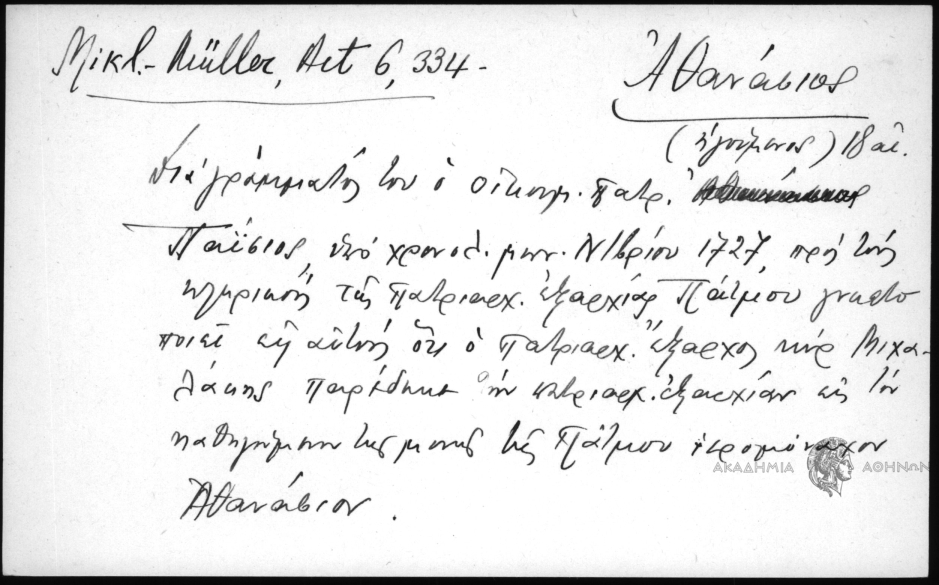 Mikl.- Müller, Act 6, 334-
Ἀθανάσιος
(ἡγούμενος) 18 αἰ.
Διά γράμματός του ὁ οἰκουμ. πατρ.
Παΐσιος, ὑπό χρονολ. μην. Νιβρίου 1727, πρός τούς
κληρικούς τῆς πατριαρχ. ἐξαρχίας Πάτμου γνωστο
ποιεῖ εἰς αὐτούς ὅτι ὁ πατριαρχ. ἔξαρχος κύρ Μιχα-
λάκης παρέδωκε τήν πατριαρχ. ἐξαρχίαν εἰς τόν
καθηγούμενον τῆς μονῆς τῆς Πάτμου ἱερομόναχον
Ἀθανάσιον.
ΑΚΑΔΗΜΙΑ ΑΘΗΝΩΝ